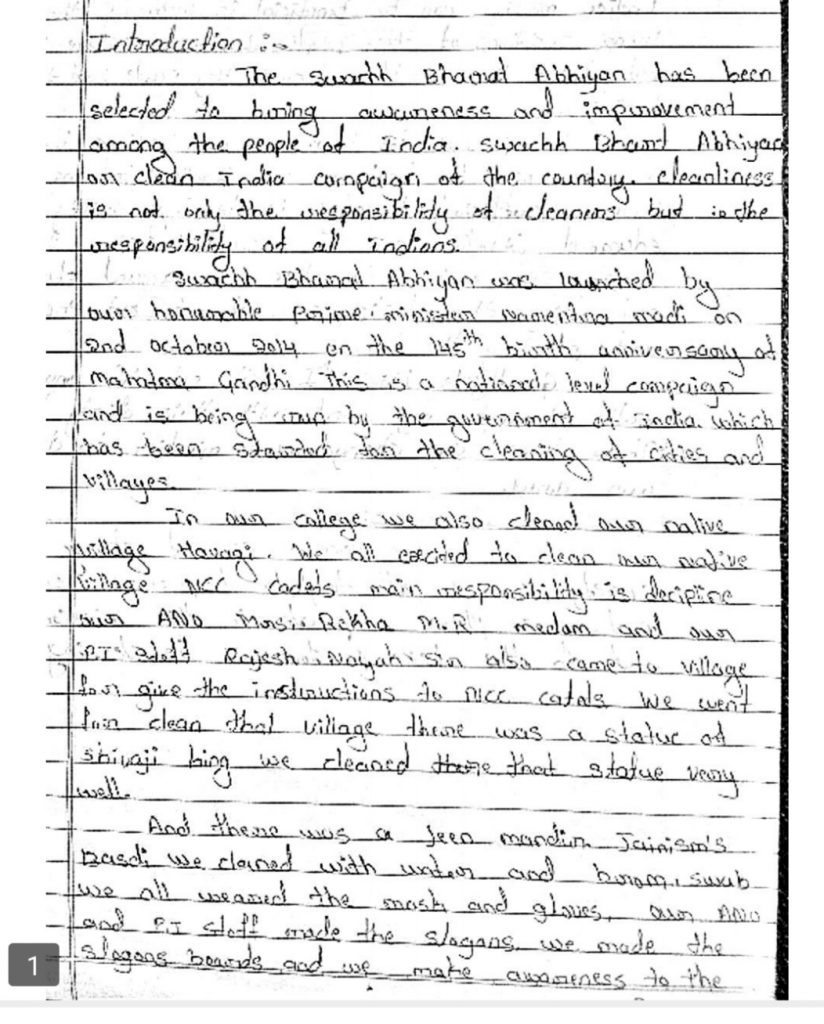 Introduction :-
The Swachh Bharat Abhiyan has been
selected to bring awareness and improvement
among the people of India. Swachh Bharat Abhiyan
clean India campaign of the country. cleanliness
is not only the responsibility of cleaners but is the
responsibility of all Indians.
Swachh Bharat Abhiyan was launched by
our honarable Prime minister narendra modi on
2nd october 2014 on the 145th birth anniversary of
Mahatma Gandhi This is a national level campaign
and is being run by the government of India. which
has been started for the cleaning of cities and
villages.
In our college we also cleaned our native
village Havagi. We all decided to clean our native
village NCC Cadets main responsibility is
our ANO Rekha M.R medam and our
P.I staff Rajesh Nayak sir also came to village
for give the instructions to NCC We went
for clean that village there was a statue of
shivaji king we cleaned that statue very
well.
And there was a jeen mandir Jainism's
Basdi we claned with water and broom, swab
we all weared the mask and gloves, our ANO
and P.I staff made the slogans we made the
slogans boards and we make awareness to the
1